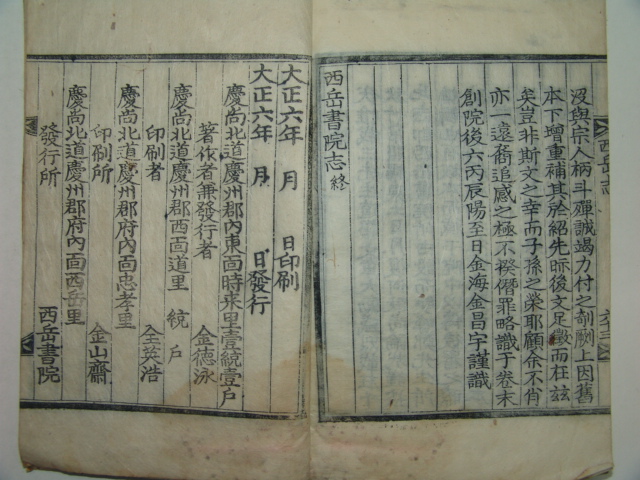 沒與宗人柄斗殫誠竭力付之剞劂上因舊
本下增重補其於紹先昹後文足徵而在玆
矣豈非斯文之幸而子孫之榮耶顧余不肖
亦一遠裔追感之極不揆僭罪略識于卷末
創院後六丙辰陽至日金海金昌宇謹識
西岳書院志 終
西岳志
大正六年 月 日印刷
大正六年 月 日發行
慶尚北道慶州郡內東面時来里壹統壹戶
著作者兼發行者 金德泳
慶尚北道慶州郡西面道里 統 戶
印刷者 全英浩
慶尚北道慶州郡府內面忠孝里
印刷所 金山齋
慶尚北道慶州郡府內面西岳里
發行所 西岳書院